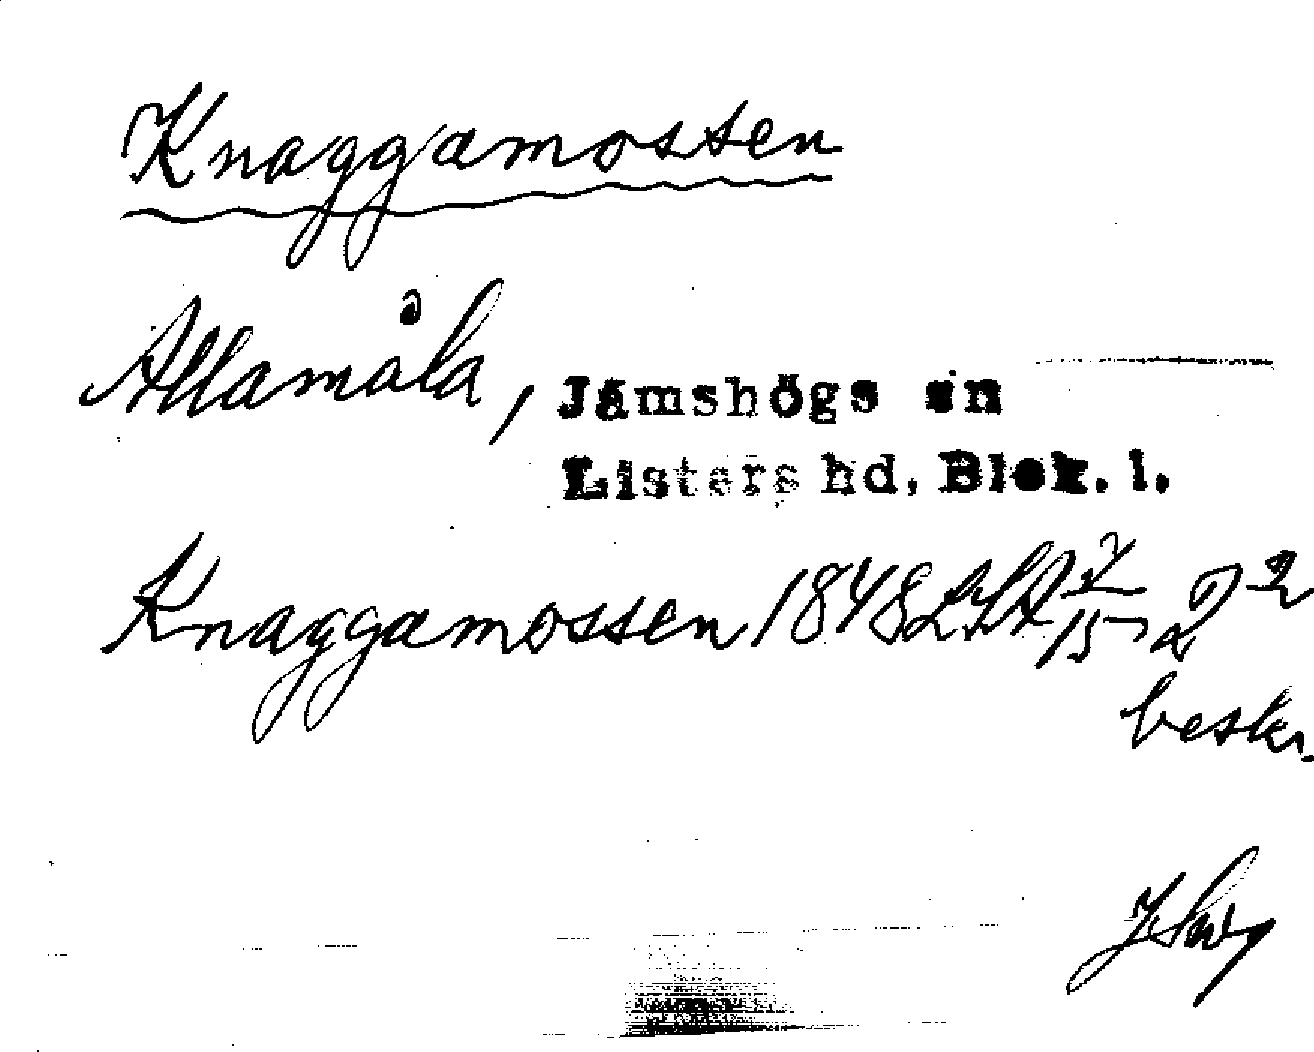 Knaggamossen
Allamåla, Jämshögs sn
Listers hd, Blek. l.
Knaggamossen 1848 LSA
beskr.